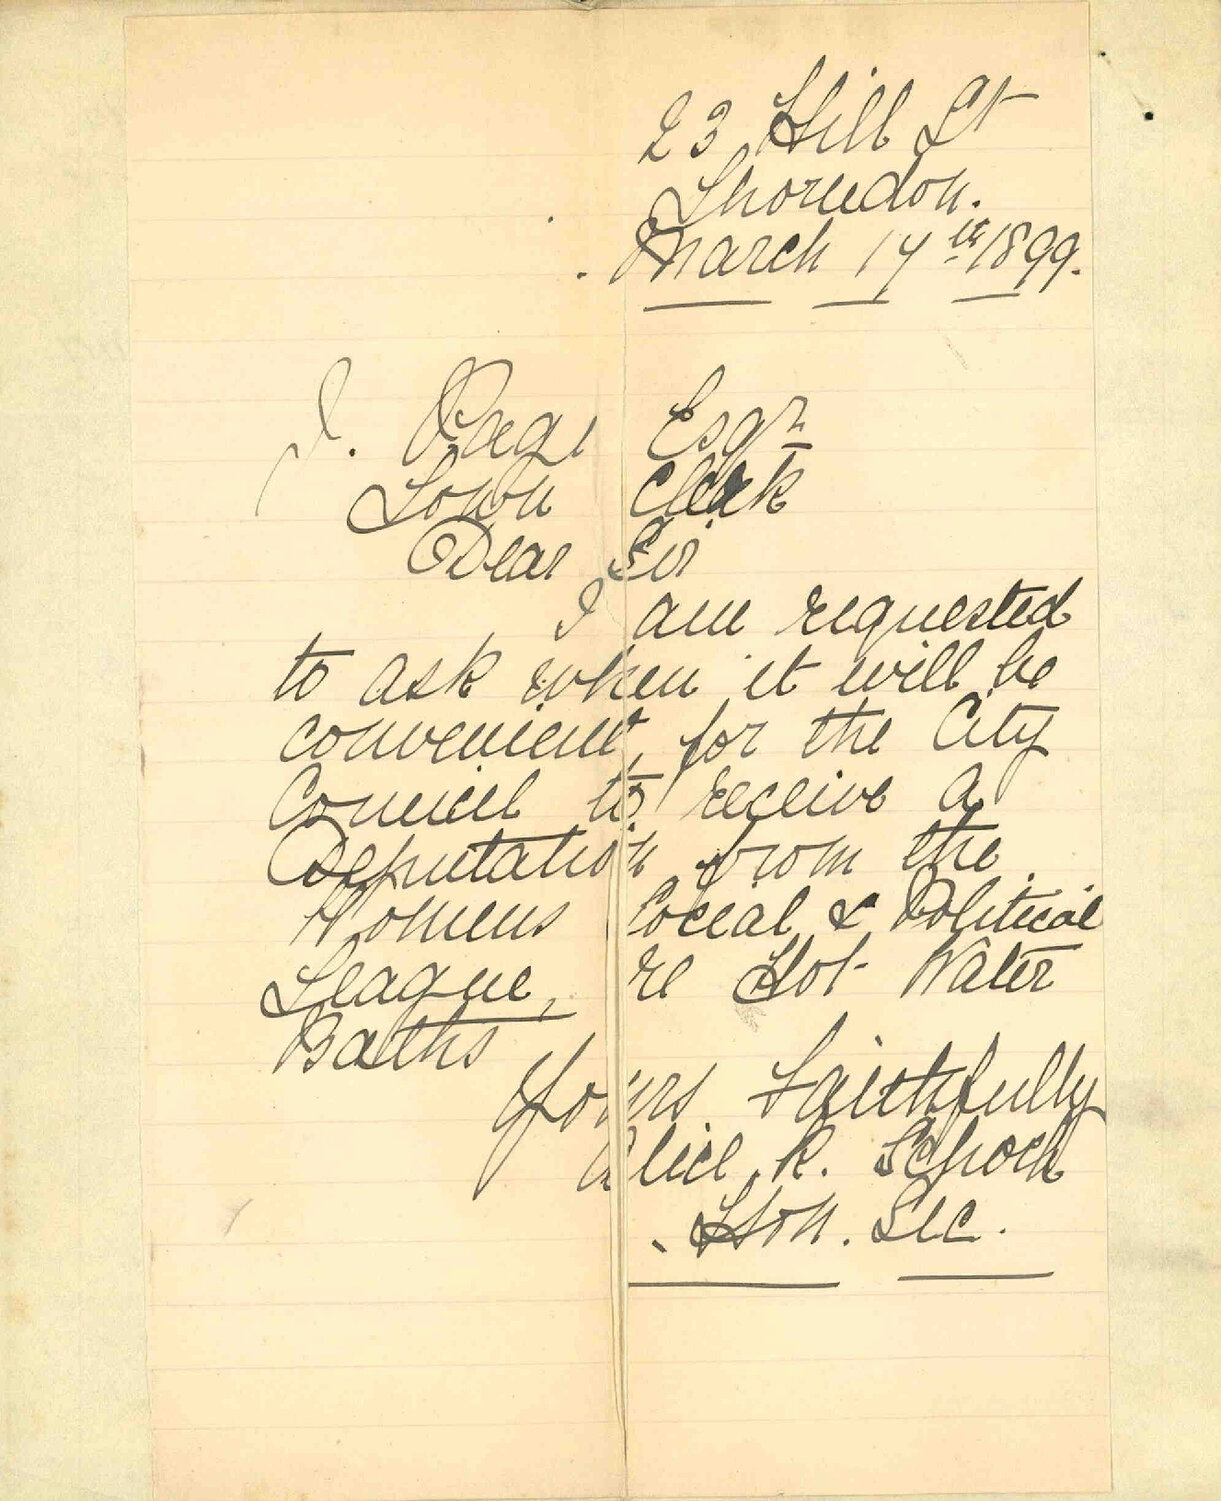 23 Hill St
Thorndon.
March 14th 1899.
J. Page Esqr
Town Clerk
Dear Sir
I am requested
to ask when it will be
convenient, for the City
Council to receive a
Deputation from the
Womens Social & Political
League, re Hot Water
Baths
Yours Faithfully
Alice R. Schoch
Hon. Sec.